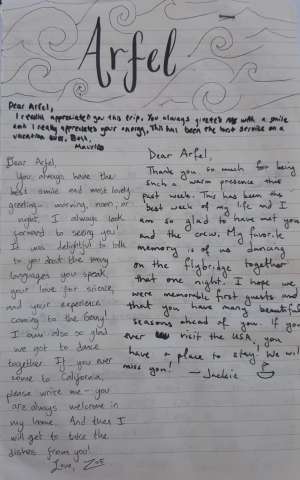 Arfel
Dear Arfel,
I really appreciated you this trip. You always greeted me with a smile
and I really appreciated your energy. This has been the best service on a
vacation ever. Best,
Dear Arfel,
You always have the
best smile and most lovely
greeting – morning, noon, or
night, I always look
forward to seeing you!
It was delightful to talk
to you about the many
languages you speak,
your love for science,
and your experience
coming to the
I am also so glad
we got to dance
together. If you ever
come to California,
please write me – you
are always welcome in
my home. And then I
will get to take the
dishes from you!
Love, Zoe
Dear Arfel,
Thank you so much for being
such a warm presence this
past week. This has been the
best week of my life and I
am so glad to have met you
and the crew. My favorite
memory is of us dancing
on the flybridge together
that one night. I hope we
were memorable first guests and
that you have many beautiful
seasons ahead of you. If you
ever visit the USA, you
have a place to stay. We will
miss you!
— Jackie